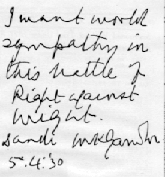 I want world
sympathy in
this battle of
Right against
might.
Dandi MKGandhi
5.4.30